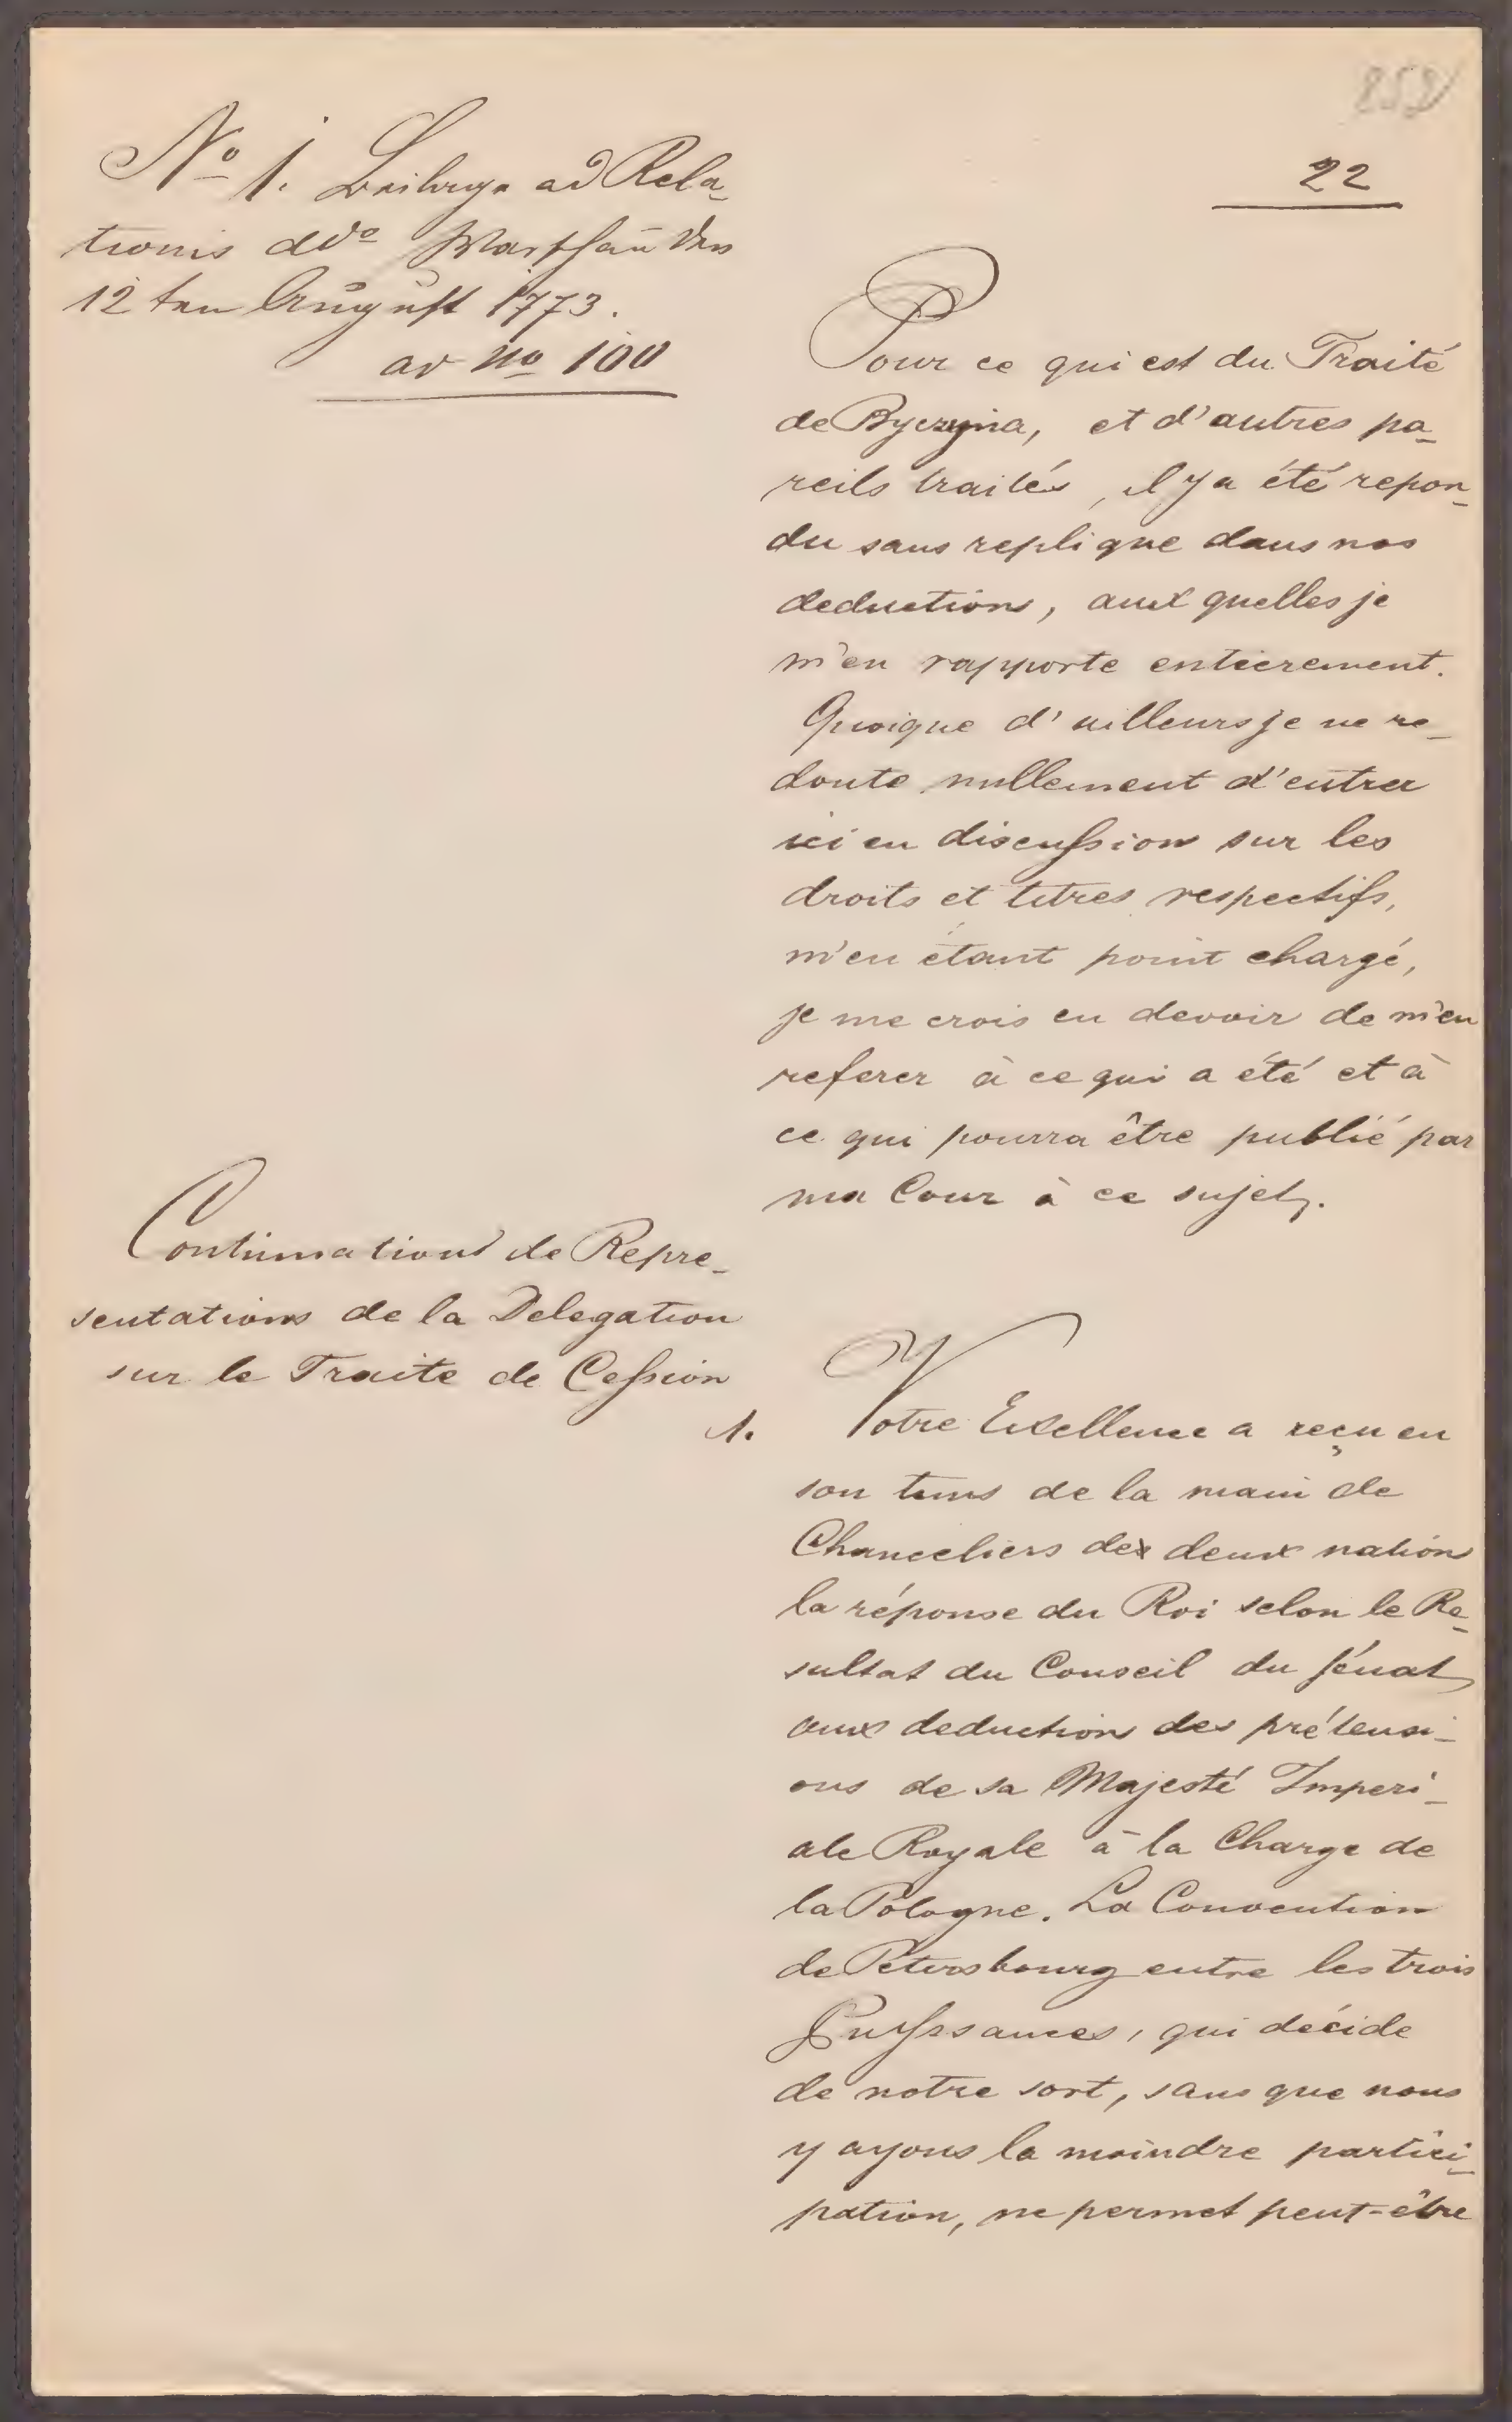 252
22
No 1. Beilage ad Rela-
tionis ddo Warschau den
12 ten August 1773.
ad no 100
Pour ce qui est du Traité
de Byczyna, et d'autres pa-
reils traités, il y a été repon-
du sans replique dans nos
deductions, aux quelles je
m'en rapporte entierement.
Quoique d'ailleurs je ne re-
doute nullement d'entrer
ici en discussion sur les
droits et titres respectifs,
m'en étant point chargé,
je me crois en devoir de m'en
referer à ce qui a été et à
ce qui pourra être publié par
ma Cour à ce sujet.
Continuations de Repre-
sentations de la Delegation
sur le Traite de Cession
1. Votre Exellence a reçu en
son tems de la main de
Chanceliers des deux nations
la réponse du Roi selon le Re-
sultat du Conseil du Sénat
aux deductions des prétensi-
ons de sa Majesté Imperi-
ale Royale à la Charge de
la Pologne. La Convention
de Petersbourg entre les trois
Puissances, qui décide
de notre sort, sans que nous
y ayons la moindre partici-
pation, ne permet peut-être